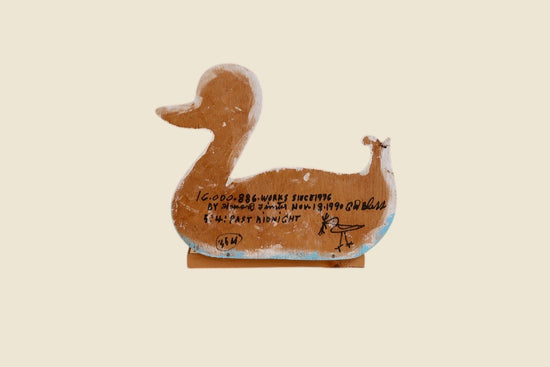 10.000.886.WORKS SINCE 1976
BY Howard Finster NOV.18.1990 GOD Bless
PAST MIDNIGHT